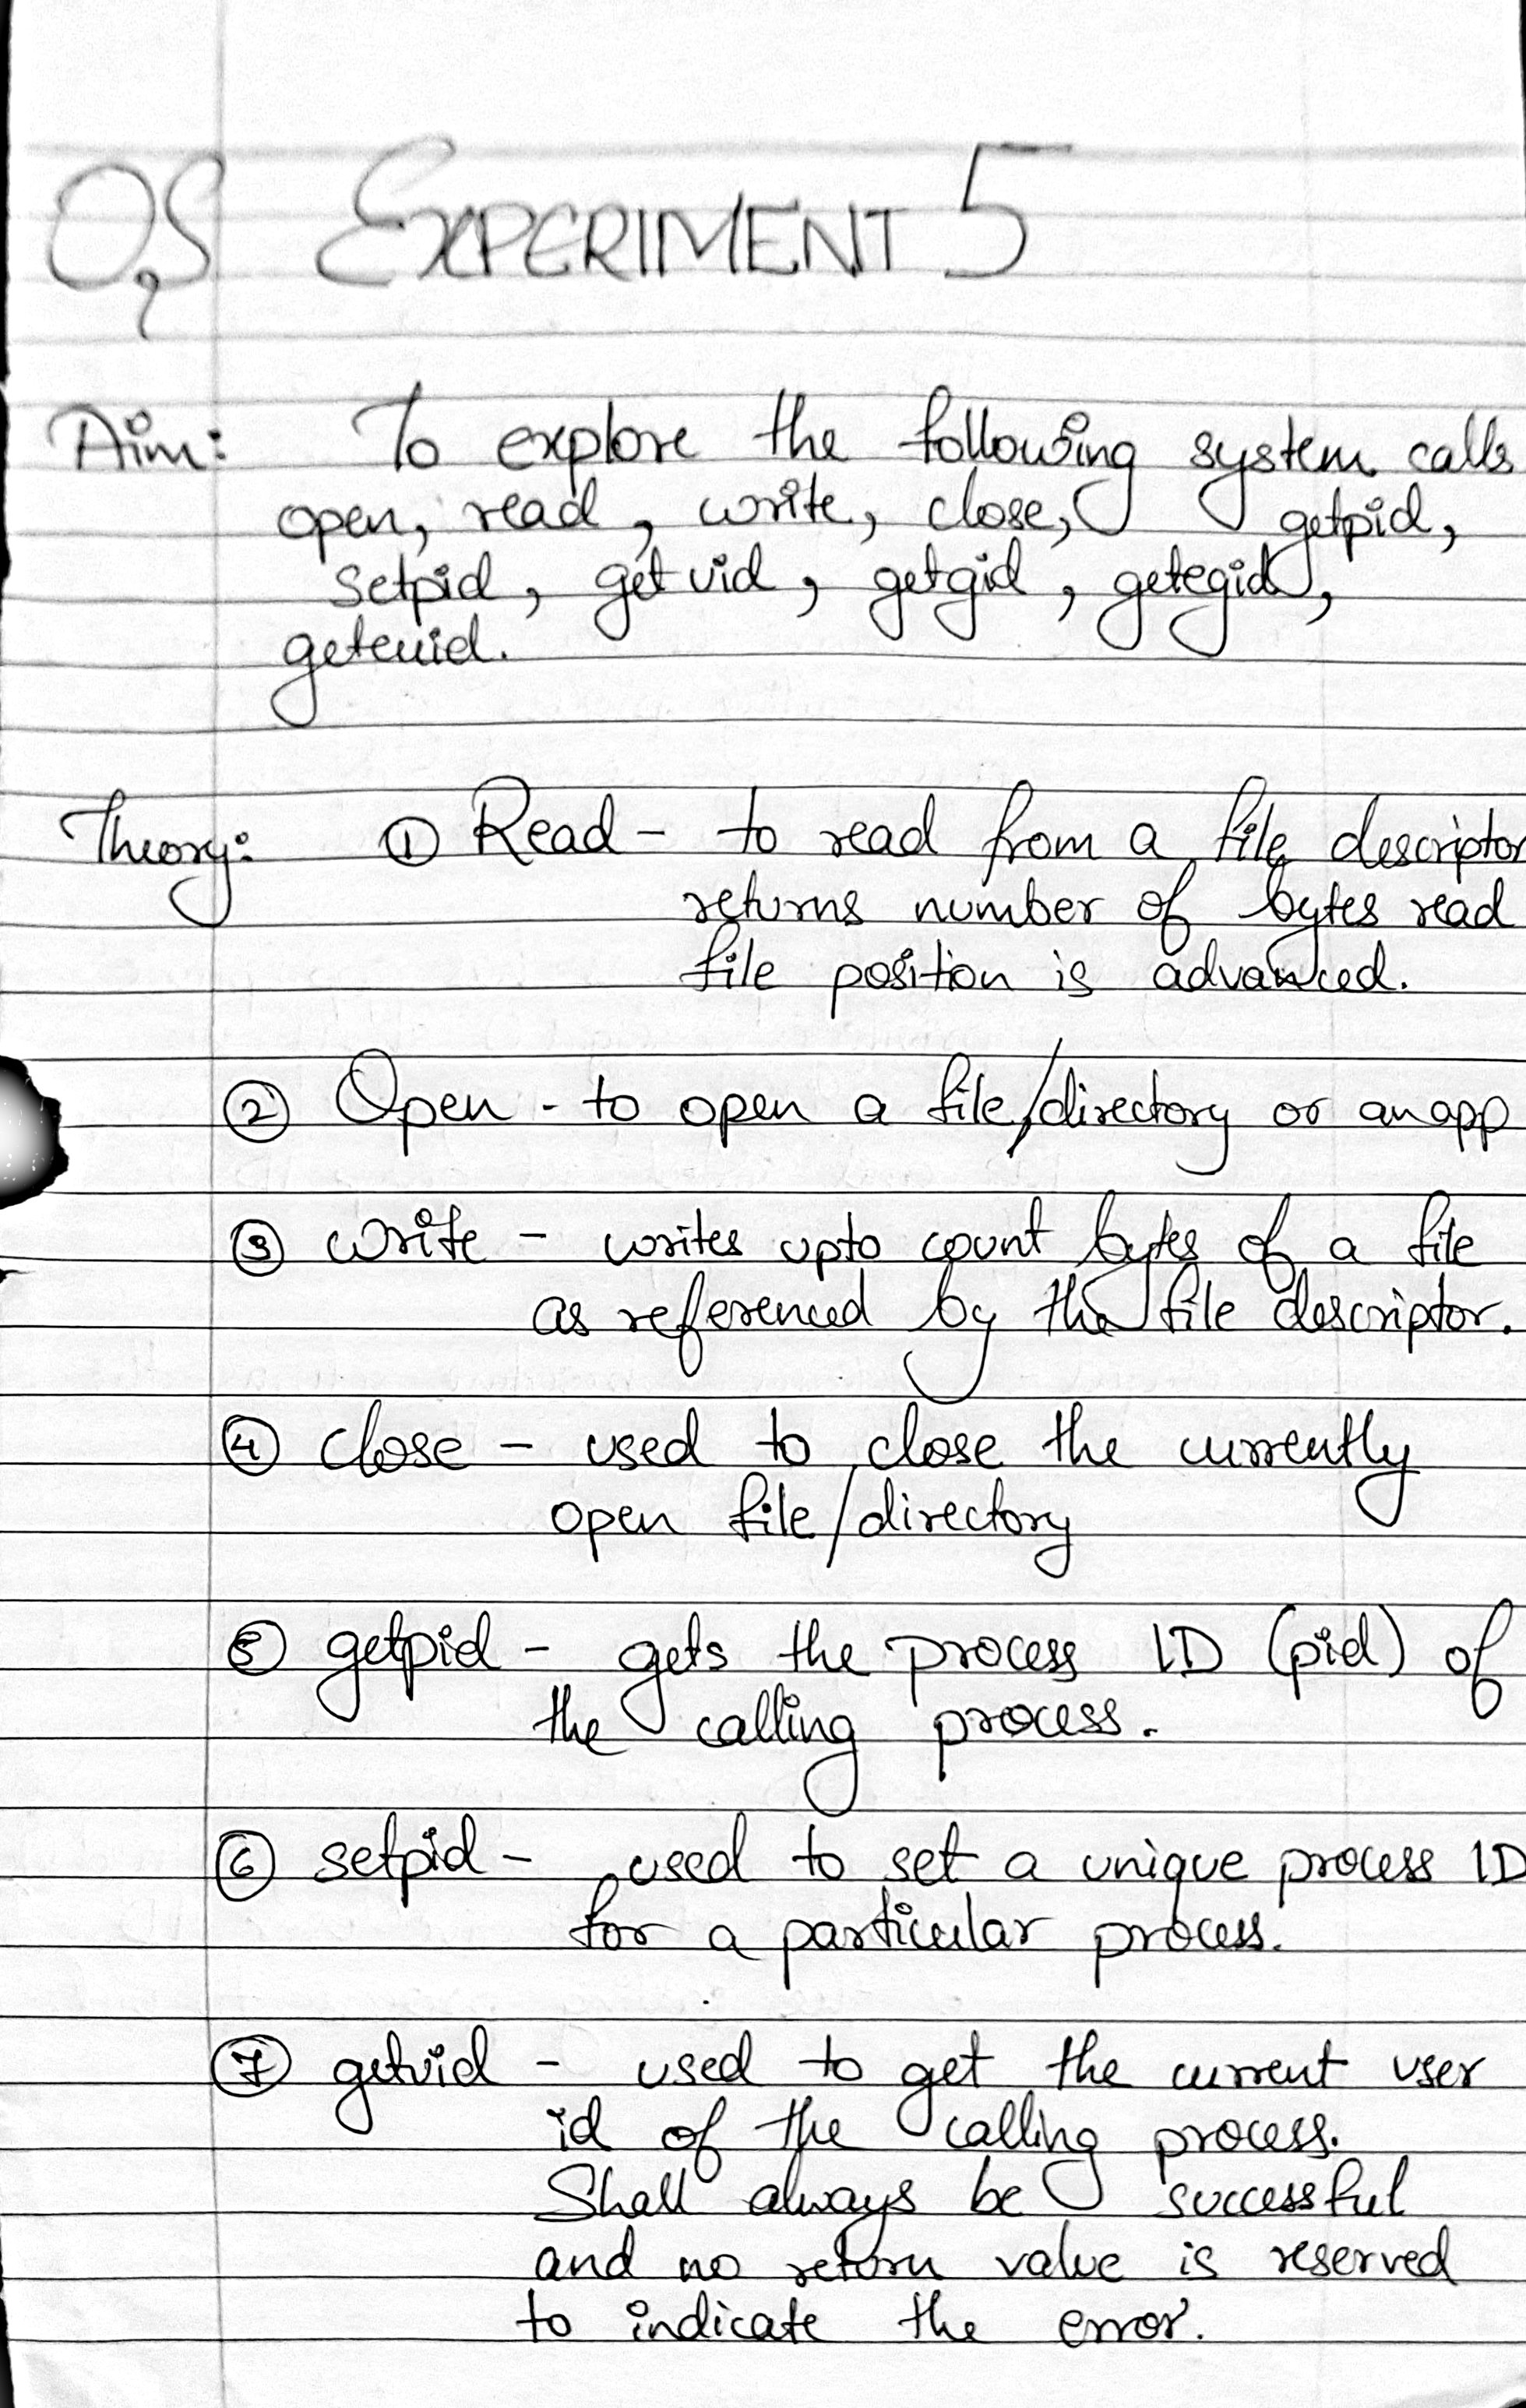 OS EXPERIMENT 5
Aim: To explore the following system calls
open, read, write, close, getpid,
setpid, getuid, getgid, getegid,
geteuid.
Theory: ① Read - to read from a file descriptor
returns number of bytes read
file position is advanced.
② Open - to open a file/directory or an app
③ write - writes upto count bytes of a file
as referenced by the file descriptor.
④ close - used to close the currently
open file/directory
⑤ getpid - gets the process ID (pid) of
the calling process.
⑥ setpid - used to set a unique process ID
for a particular process.
⑦ getuid - used to get the current user
id of the calling process.
Shall always be successful
and no return value is reserved
to indicate the error.